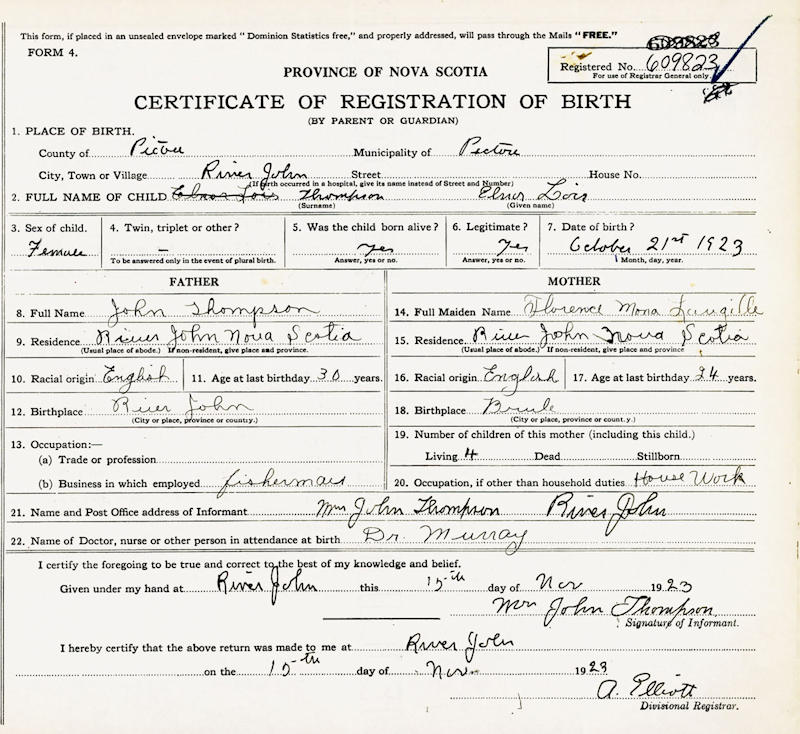 This form, if placed in an unsealed envelope marked "Dominion Statistics free," and properly addressed, will pass through the Mails "FREE."
FORM 4.
609823
Registered No. 609823
For use of Registrar General only.
PROVINCE OF NOVA SCOTIA
CERTIFICATE OF REGISTRATION OF BIRTH
(BY PARENT OR GUARDIAN)
1. PLACE OF BIRTH.
County of Pictou Municipality of Pictou
City, Town or Village River John Street House No.
(If birth occurred in a hospital, give its name instead of Street and Number)
2. FULL NAME OF CHILD Elnor Lois Thompson Elnor Lois
(Surname) (Given name)
3. Sex of child. 4. Twin, triplet or other? 5. Was the child born alive? 6. Legitimate? 7. Date of birth?
Female — yes Yes October 21st 1923
To be answered only in the event of plural birth. Answer, yes or no. Answer, yes or no. Month, day, year.
FATHER
8. Full Name John Thompson
9. Residence River John Nova Scotia
(Usual place of abode.) If non-resident, give place and province.
10. Racial origin English 11. Age at last birthday 30 years.
12. Birthplace River John
(City or place, province or country.)
13. Occupation:—
(a) Trade or profession
(b) Business in which employed fisherman
MOTHER
14. Full Maiden Name Florence Mona Langille
15. Residence River John Nova Scotia
(Usual place of abode.) If non-resident, give place and province
16. Racial origin English 17. Age at last birthday 24 years.
18. Birthplace Brule
(City or place, province or country.)
19. Number of children of this mother (including this child.)
Living 4 Dead Stillborn
20. Occupation, if other than household duties House Work
21. Name and Post Office address of Informant Mrs John Thompson River John
22. Name of Doctor, nurse or other person in attendance at birth Dr. Murray
I certify the foregoing to be true and correct to the best of my knowledge and belief.
Given under my hand at River John this 15th day of Nov 1923
Mrs John Thompson
Signature of Informant.
I hereby certify that the above return was made to me at River John
on the 15th day of Nov 1923
A. Elliott
Divisional Registrar.